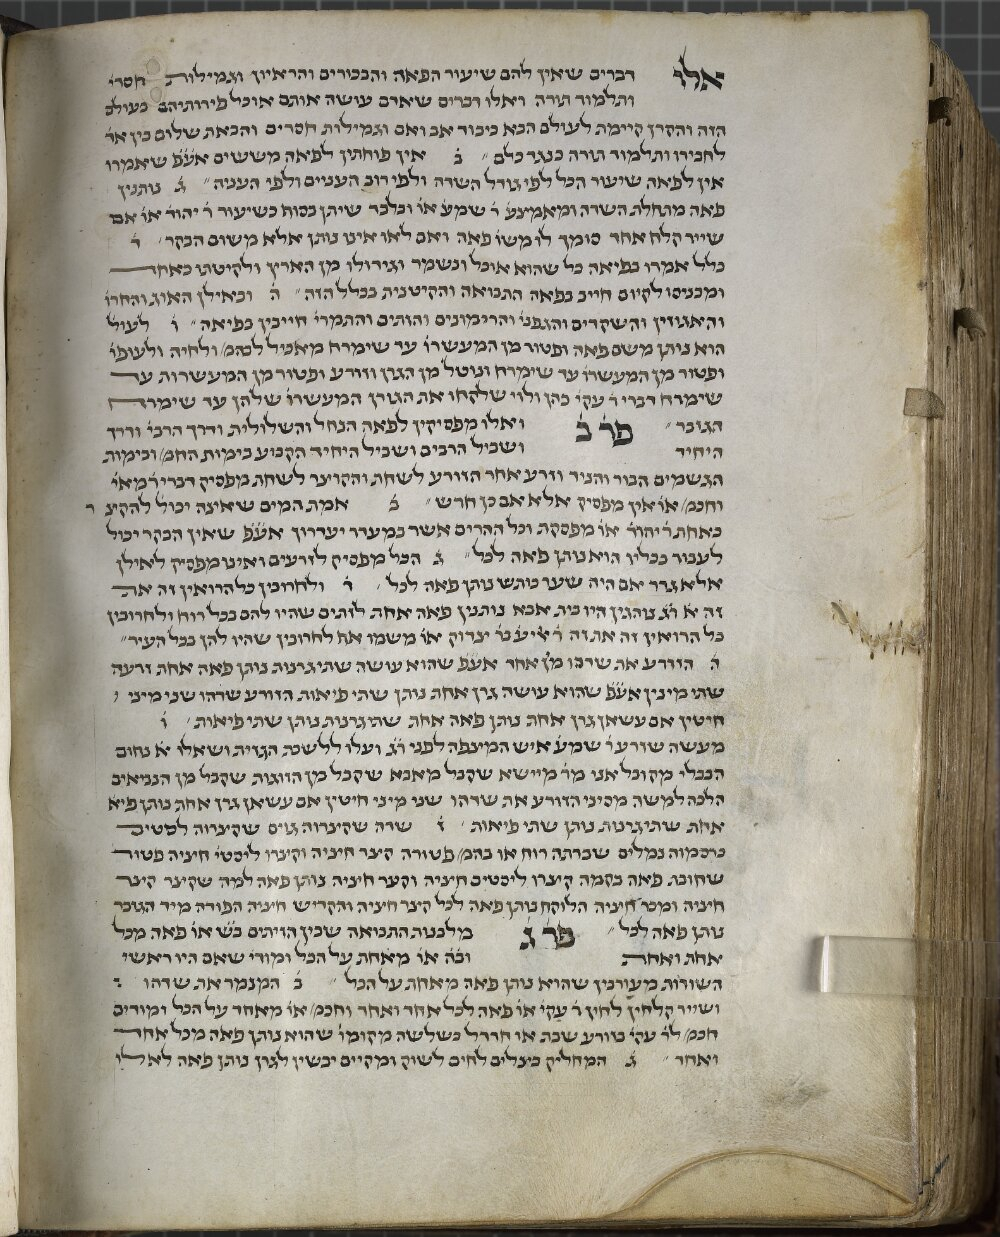 אלו דברים שאין להם שיעור הפאה והבכורים והראיון וגמילות חסדי
ותלמוד תורה ואלו דברים שאדם עושה אותם אוכל פירותיהם בעולם
הזה והקרן קיימת לעולם הבא כיבוד אב ואם וגמילות חסדים והבאת שלום בין אד
לחבירו ותלמוד תורה כנגד כלם ב אין פוחתין לפאה מששים אעפ שאמרו
אין לפאה שיעור הכל לפי גודל השדה ולפי רוב העניים ולפי העניה ג נותנין
פאה מתחלת השדה ומאמצע ר שמע או ובלבד שיתן בסוף כשיעור ר יהוד או אם
שייר קלח אחד סומך לו משו פאה ואם לאו אינו נותן אלא משום הבקר ד
כלל אמרו בפיאה כל שהוא אוכל ונשמר וגידולו מן הארץ ולקיטתו כאחת
ומכניסו לקיום חייב בפאה התבואה והקיטנית בכלל הזה ה ובאילן האוג והחרו
והאגוזין והשקדים והגפני והרימונים והזתים והתמרי חייבין בפיאה ו לעול
הוא נותן משם פאה ופטור מן המעשרו עד שימרח מאכיל לבהמ ולחיה ולעופו
ופטור מן המעשרו עד שימרח ונוטל מן הגרן וזורע ופטור מן המעשרות עד
שימרח דברי ר עקי כהן ולוי שלקחו את הגורן המעשרו שלהן עד שימרח
הגזבר פר ב ואלו מפסיקין לפאה הנחל והשלולית ודרך הרבי ודרך
היחיד ושביל הרבים ושביל היחיד הקבוע בימות החמ ובימות
הגשמים הבור והניר וזרע אחר הזורע לשחת והקוצר לשחת מפסיק דברי ר מאי
וחכמ או אין מפסיק אלא אם כן חרש ב אמת המים שאינה יכול להקיצ ר
כאחת ר יהוד או מפסקת וכל ההרים אשר במעדר יעדרון אעפ שאין הבקר יכול
לעבור בכליו הוא נותן פאה לכל ג הכל מפסיק לזרעים ואינו מפסיק לאילן
אלא גדר אם היה שער כותש נותן פאה לכל ד ולחרובין כל הרואין זה את
זה א רג נוהגין היו בית אבא נותנין פאה אחת לזתים שהיו להם בכל רוח ולחרובין
כל הרואין זה את זה ר אליע בר צדוק או משמו אף לחרובין שהיו להן בכל העיר
ה הזורע את שדהו מין אחד אעפ שהוא עושה שתי גרנות נותן פאה אחת זרעה
שתי מינין אעפ שהוא עושה גרן אחת נותן שתי פיאות הזורע שדהו שני מיני
חיטין אם עשאן גרן אחת נותן פאה אחת שתי גרנות נותן שתי פיאות ו
מעשה שזרע ר שמע איש המיצפה לפני רג ועלו ללשכת הגזית ושאלו א נחום
הלבלר מקובל אני מר מיישא שקבל מאבא שקבל מן הזוגות שקבל מן הנביאים
הלכה למשה מסיני הזורע את שדהו שני מיני חיטין אם עשאן גרן אחת נותן פיא
אחת שתי גרנות נותן שתי פיאות ז שדה שקצרוה גוים שקצרוה לסטים
כרסמוה נמלים שברתה רוח או בהמ פטורה קצר חיציה וקצרו ליסטי חיציה פטור
שחובת פאה בקמה קצרו ליסטים חיציה וקצר חיציה נותן פאה למה שקצר קצר
חיציה ומכר חיציה הלוקח נותן פאה לכל קצר חיציה והקדיש חיציה הפודה מיד הגזבר
נותן פאה לכל פר ג מלבנות התבואה שבין הזיתים בש או פאה מכל
אחת ואחת ובה או מאחת על הכל ומודי שאם היו ראשי
השורות מעורבין שהוא נותן פאה מאחת על הכל ב המנמר את שדהו
ושייר קלחין לחין ר עקי או פאה לכל אחד ואחד וחכמ או מאחד על הכל ומודים
חכמ לר עקי בזורע שבת או חרדל בשלשה מקומו שהוא נותן פאה מכל אחד
ואחד ג המחליק בצלים לחים לשוק ומקיים יבשין לגורן נותן פאה לאלו